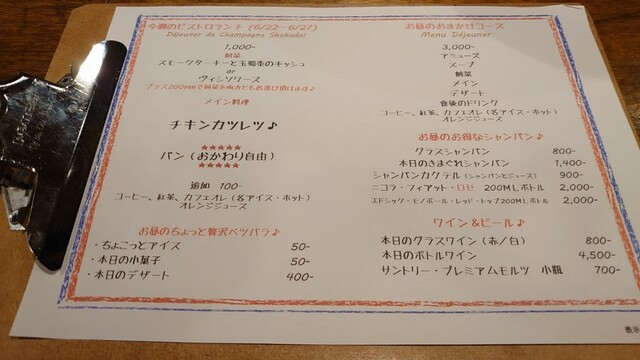 今週のビストロランチ (6/22ー6/27)
Déjeuner de Champagne Shokudo!
1,000-
前菜
スモークターキーと玉蜀黍のキッシュ
or
ヴィシソワーズ
プラス200円で前菜を両方ともお選び頂けます♪
メイン料理
チキンカツレツ♪
★★★★★
パン (おかわり自由)
★★★★★
追加 100-
コーヒー、紅茶、カフェオレ (各アイス・ホット)
オレンジジュース
お昼のちょっと贅沢ベツバラ♪
・ちょこっとアイス 50-
・本日の小菓子 50-
・本日のデザート 400-
お昼のおまかせコース
Menu Déjeuner
3,000-
アミューズ
スープ
前菜
メイン
デザート
食後のドリンク
コーヒー、紅茶、カフェオレ (各アイス・ホット)
オレンジジュース
お昼のお得なシャンパン♪
グラスシャンパン 800-
本日のきまぐれシャンパン 1,400-
シャンパンカクテル (シャンパンとジュース) 900-
ニコラ・フィアット・ロゼ 200MLボトル 2,000-
エドシック・モノポール・レッド・トップ200MLボトル 2,000-
ワイン&ビール♪
本日のグラスワイン (赤/白) 800-
本日のボトルワイン 4,500-
サントリー・プレミアムモルツ 小瓶 700-
表示